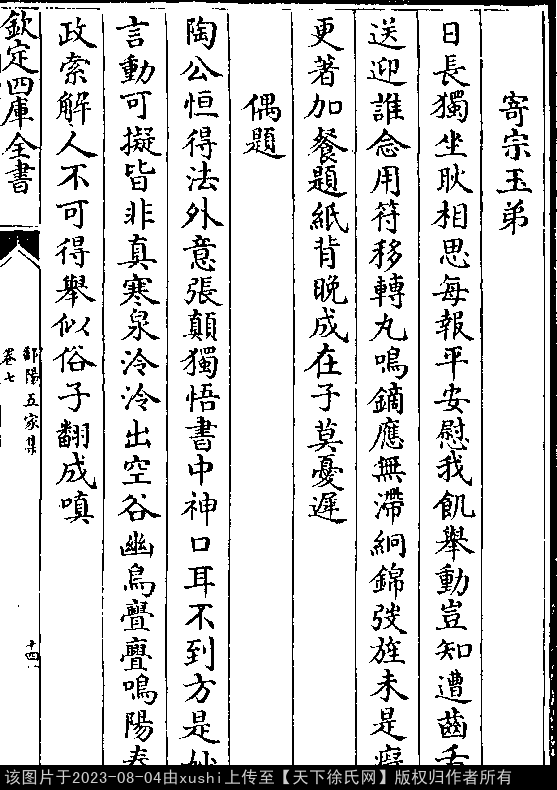 寄宗玉弟
日長獨坐耿相思每報平安慰我飢舉動豈知遭齒舌
送迎誰念用符移轉丸鳴鏑應無滯絅錦弢旌未是癡
更著加餐題紙背晚成在子莫憂遲
偶題
陶公恒得法外意張顛獨悟書中神口耳不到方是妙
言動可擬皆非真寒泉泠泠出空谷幽鳥亹亹鳴陽春
政索解人不可得舉似俗子翻成嗔
欽定四庫全書
鄱陽五家集
卷七
十四
该图片于2023-08-04由xushi上传至【天下徐氏网】版权归作者所有